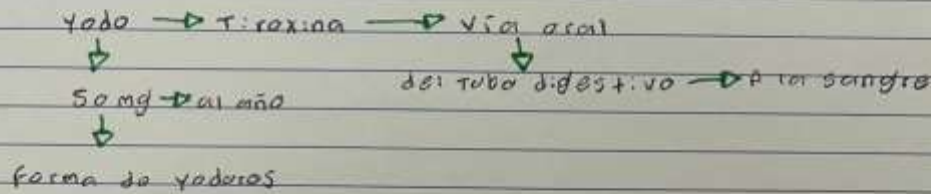 Yodo → Tiroxina → Vía oral
↓ ↓
50 mg → al año del Tubo digestivo → A la sangre
↓
forma de yoduros